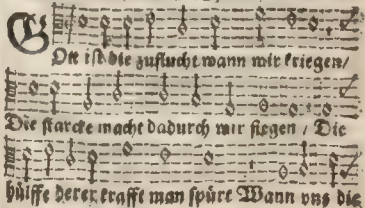 GOtt ist die zuflucht wann wir kriegen/
Die starcke macht dadurch wir siegen / Die
hülffe derer krafft man spürt Wann vns die